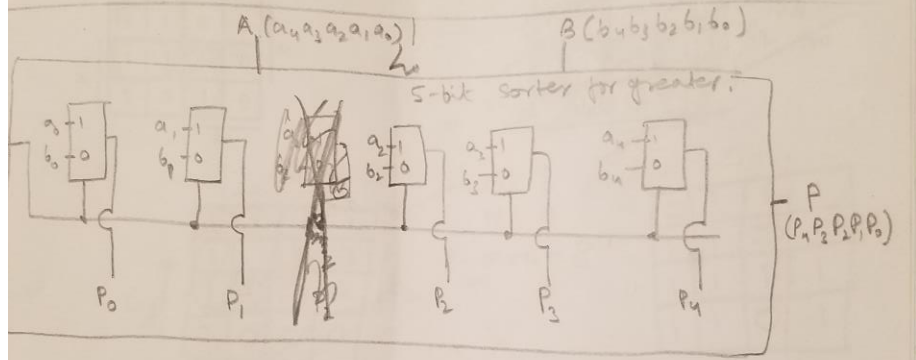 A (a4a3a2a1a0) B (b4b3b2b1b0)
5-bit sorter for greater.
a0 1 a1 1 a2 1 a3 1 a4 1
b0 0 b1 0 b2 0 b3 0 b4 0
P
(P4P3P2P1P0)
P0 P1 P2 P3 P4